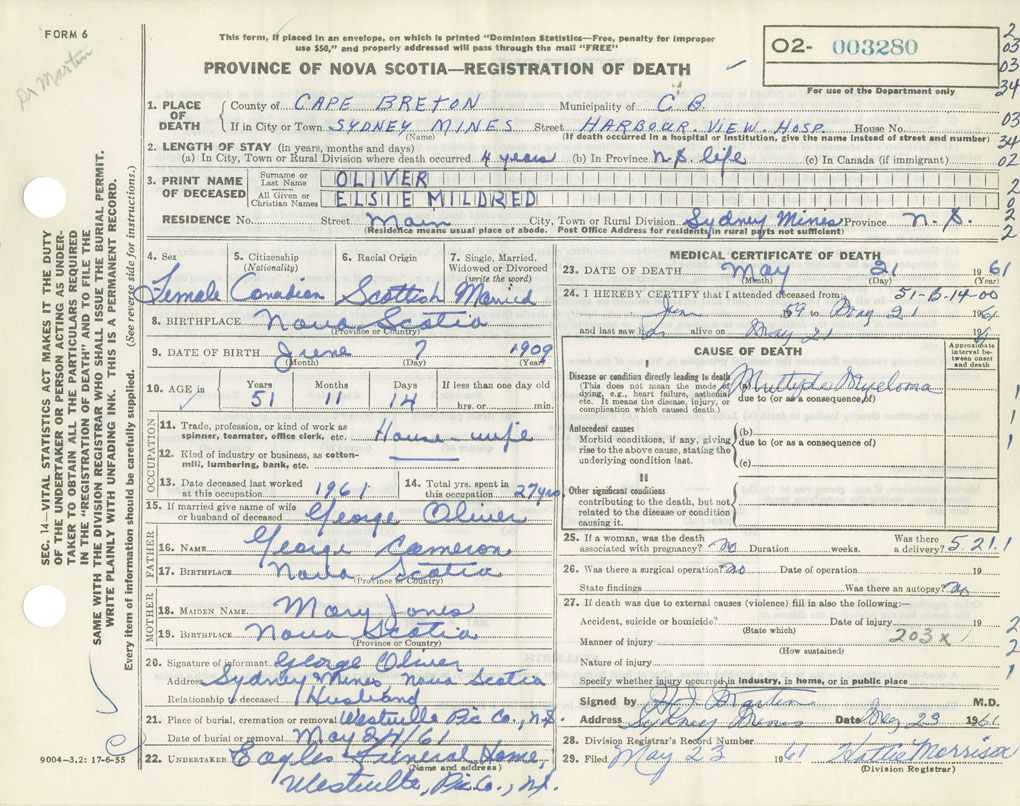 FORM 6
Dr Martin
This form, if placed in an envelope, on which is printed "Dominion Statistics—Free, penalty for improper
use $50," and properly addressed will pass through the mail "FREE"
PROVINCE OF NOVA SCOTIA—REGISTRATION OF DEATH
O2- 003280
For use of the Department only
2
03
03
34
03
34
02
2
0
2
2
SEC. 14—VITAL STATISTICS ACT MAKES IT THE DUTY
OF THE UNDERTAKER OR PERSON ACTING AS UNDER-
TAKER TO OBTAIN ALL THE PARTICULARS REQUIRED
IN THE "REGISTRATION OF DEATH" AND TO FILE THE
SAME WITH THE DIVISION REGISTRAR WHO SHALL ISSUE THE BURIAL PERMIT.
WRITE PLAINLY WITH UNFADING INK. THIS IS A PERMANENT RECORD.
Every item of information should be carefully supplied. (See reverse side for instructions.)
1. PLACE OF DEATH
County of CAPE BRETON Municipality of C.B.
If in City or Town SYDNEY MINES Street HARBOUR VIEW HOSP. House No.
(Name) (If death occurred in a hospital or institution, give the name instead of street and number)
2. LENGTH OF STAY (in years, months and days)
(a) In City, Town or Rural Division where death occurred 4 years (b) In Province N.S. life (c) In Canada (if immigrant)
3. PRINT NAME OF DECEASED
Surname or Last Name OLIVER
All Given or Christian Names ELSIE MILDRED
RESIDENCE No. Street Main City, Town or Rural Division Sydney Mines Province N.S.
(Residence means usual place of abode. Post Office Address for residents in rural parts not sufficient)
4. Sex 5. Citizenship (Nationality) 6. Racial Origin 7. Single, Married, Widowed or Divorced (write the word)
Female Canadian Scottish Married
8. BIRTHPLACE Nova Scotia
(Province or Country)
9. DATE OF BIRTH June 7 1909
(Month) (Day) (Year)
10. AGE in Years Months Days If less than one day old
51 11 14 hrs. or min.
OCCUPATION
11. Trade, profession, or kind of work as spinner, teamster, office clerk, etc. House-wife
12. Kind of industry or business, as cotton-mill, lumbering, bank, etc.
13. Date deceased last worked at this occupation 1961 14. Total yrs. spent in this occupation 27 yrs
15. If married give name of wife or husband of deceased George Oliver
FATHER
16. NAME George Cameron
17. BIRTHPLACE Nova Scotia
(Province or Country)
MOTHER
18. MAIDEN NAME Mary Jones
19. BIRTHPLACE Nova Scotia
(Province or Country)
20. Signature of informant George Oliver
Address Sydney Mines Nova Scotia
Relationship to deceased Husband
21. Place of burial, cremation or removal Westville Pic Co., N.S.
Date of burial or removal May 24/61
22. UNDERTAKER Eagles Funeral Home,
(Name and address)
Westville, Pic Co., N.S.
9004—3.2: 17-6-55
MEDICAL CERTIFICATE OF DEATH
23. DATE OF DEATH May 21 1961
(Month) (Day) (Year)
51-B-14-00
24. I HEREBY CERTIFY that I attended deceased from:
Jan 59 to May 21 1961
and last saw her alive on May 21 1961
CAUSE OF DEATH
Approximate interval between onset and death
I
Disease or condition directly leading to death
(This does not mean the mode of dying, e.g., heart failure, asthenia etc. It means the disease, injury, or complication which caused death.)
(a) Multiple Myeloma
due to (or as a consequence of)
Antecedent causes
Morbid conditions, if any, giving rise to the above cause, stating the underlying condition last.
(b)
due to (or as a consequence of)
(c)
II
Other significant conditions
contributing to the death, but not related to the disease or condition causing it.
1
1
1
25. If a woman, was the death associated with pregnancy? No Duration weeks. Was there a delivery?
5 21.1
26. Was there a surgical operation? No Date of operation 19
State findings Was there an autopsy? No
27. If death was due to external causes (violence) fill in also the following:—
Accident, suicide or homicide? Date of injury 19
(State which)
203x
Manner of injury
(How sustained)
Nature of injury
Specify whether injury occurred in industry, in home, or in public place
2
2
1
Signed by H.J. Martin M.D.
Address Sydney Mines Date May 23 1961
28. Division Registrar's Record Number
29. Filed May 23 1961 Hattie Morrison
(Division Registrar)